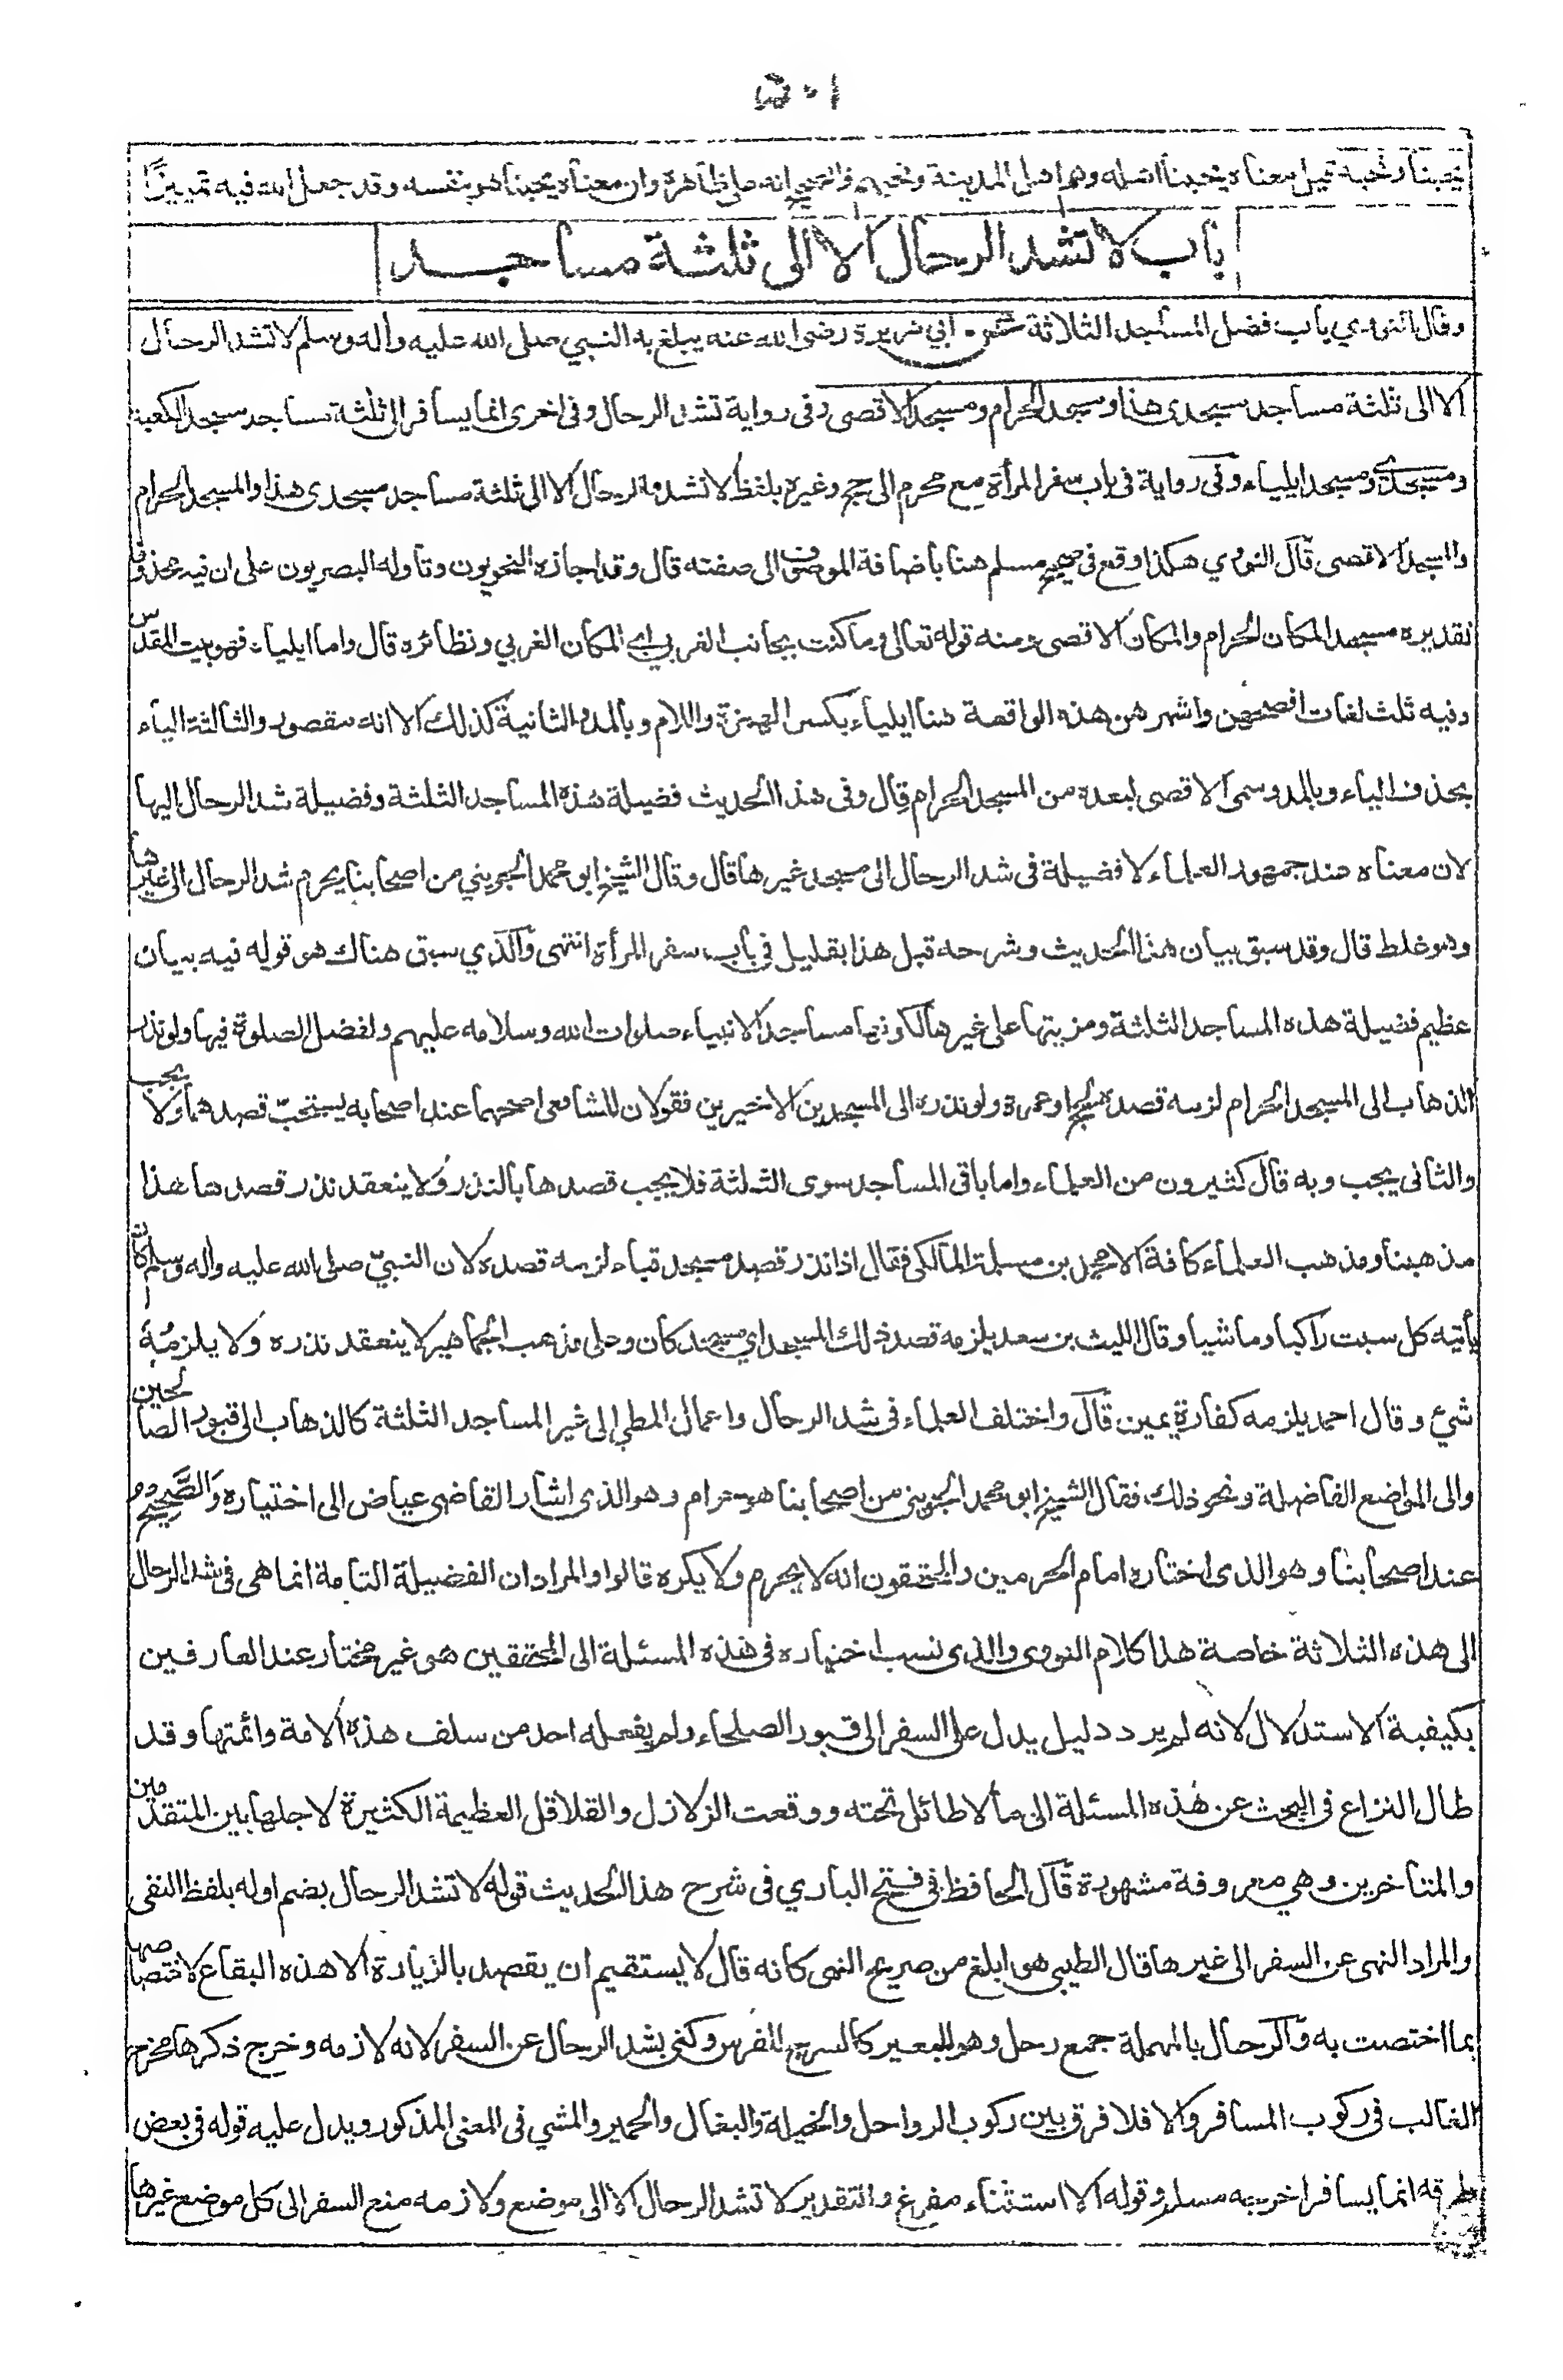 ٥٠١
يحبنا ونحبه قيل معناه يحبنا اهله وهم اهل المدينة ونحبهم والصحيح انه على ظاهره وان معناه يحبنا هو بنفسه وقد جعل الله فيه تمييزا
باب لا تشد الرحال الا الى ثلثة مساجد
وقال النووي باب فضل المساجد الثلاثة عن ابي هريرة رضى الله عنه يبلغ به النبي صلى الله عليه واله وسلم لا تشد الرحال
الا الى ثلثة مساجد مسجدى هذا ومسجد الحرام ومسجد الاقصى وفى رواية تشد الرحال وفى اخرى انما يسافر الى ثلثة مساجد مسجد الكعبة
ومسجدى ومسجد ايلياء وفى رواية فى باب سفر المرأة مع محرم الى حج وغيره بلفظ لا تشدوا الرحال الا الى ثلثة مساجد مسجدى هذا والمسجد الحرام
والمسجد الاقصى قال النووي هكذا وقع فى صحيح مسلم هنا باضافة الموصوف الى صفته قال وقد اجازه النحويون وتاوله البصريون على ان فيه محذوفا
تقديره مسجد المكان الحرام والمكان الاقصى ومنه قوله تعالى وما كنت بجانب الغربي اي المكان الغربي ونظائره قال واما ايلياء فهو بيت المقدس
وفيه ثلث لغات افصحهن واشهرهن هذه الواقعة هنا ايلياء بكسر الهمزة واللام وبالمد والثانية كذلك الا انه مقصور والثالثة الياء
بحذف الياء وبالمد وسمى الاقصى لبعده من المسجد الحرام قال وفى هذا الحديث فضيلة هذه المساجد الثلثة وفضيلة شد الرحال اليها
لان معناه عند جمهور العلماء لا فضيلة فى شد الرحال الى مسجد غيرها قال وقال الشيخ ابو محمد الجويني من اصحابنا يحرم شد الرحال الى غيرها
وهو غلط قال وقد سبق بيان هذا الحديث وشرحه قبل هذا بقليل فى باب سفر المرأة انتهى والذي سبق هناك هو قوله فيه بيان
عظيم فضيلة هذه المساجد الثلثة ومزيتها على غيرها لكونها مساجد الانبياء صلوات الله وسلامه عليهم ولفضل الصلوة فيها ولو نذر
الذهاب الى المسجد الحرام لزمه قصده لحج او عمرة ولو نذره الى المسجدين الاخيرين فقولان للشافعى اصحهما عند اصحابه يستحبّ قصدهما ولا يجب
والثانى يجب وبه قال كثيرون من العلماء واما باقى المساجد سوى الثلثة فلا يجب قصدها بالنذر ولا ينعقد نذر قصدها هذا
مذهبنا ومذهب العلماء كافة الا محمد بن مسلمة المالكى فقال اذا نذر قصد مسجد قباء لزمه قصده لان النبيّ صلى الله عليه واله وسلم كان
يأتيه كل سبت راكبا وماشيا وقال الليث بن سعد يلزمه قصد ذلك المسجد اي مسجد كان وعلى مذهب الجماهير لا ينعقد نذره ولا يلزمه
شيء وقال احمد يلزمه كفارة يمين قال واختلف العلماء فى شد الرحال واعمال المطي الى غير المساجد الثلثة كالذهاب الى قبور الصالحين
والى المواضع الفاضلة ونحو ذلك فقال الشيخ ابو محمد الجوينى من اصحابنا هو حرام وهو الذى اشار القاضى عياض الى اختياره والصَّحِيح
عند اصحابنا وهو الذى اختاره امام الحرمين والمحققون انه لا يحرم ولا يكره قالوا والمراد ان الفضيلة التامة انما هى فى شد الرحال
الى هذه الثلاثة خاصة هذا كلام النووى والذى نسب اختياره فى هذه المسئلة الى المحققين هى غير مختار عند العارفين
بكيفية الاستدلال لانه لم يرد دليل يدل على السفر الى قبور الصلحاء ولم يفعله احد من سلف هذه الامة وائمتها وقد
طال النزاع فى البحث عن هذه المسئلة الى ما لا طائل تحته ووقعت الزلازل والقلاقل العظيمة الكثيرة لاجلها بين المتقدمين
والمتأخرين وهي معروفة مشهورة قال الحافظ فى فتح الباري فى شرح هذا الحديث قوله لا تشد الرحال بضم اوله بلفظ النفى
والمراد النهى عن السفر الى غيرها قال الطيبى هو ابلغ من صريح النهى كانه قال لا يستقيم ان يقصد بالزيارة الا هذه البقاع لاختصاصها
بما اختصت به والرحال بالمهملة جمع رحل وهو للبعير كالسرج للفرس وكنى بشد الرحال عن السفر لانه لازمه وخرج ذكرها مخرج
الغالب فى ركوب المسافر والا فلا فرق بين ركوب الرواحل والخيل والبغال والحمير والمشي فى المعنى المذكور ويدل عليه قوله فى بعض
طرقه انما يسافر اخرجه مسلم وقوله الا استثناء مفرغ والتقدير لا تشد الرحال الا الى موضع ولازمه منع السفر الى كل موضع غيرها